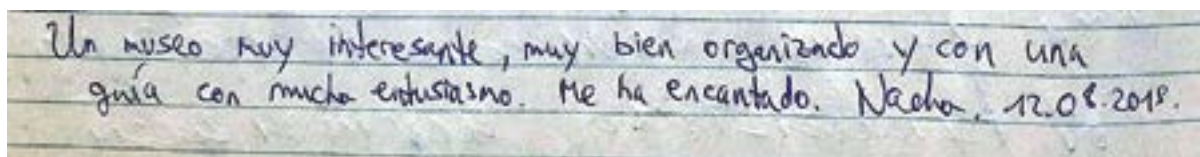 Un museo muy interesante, muy bien organizado y con una
guía con mucho entusiasmo. Me ha encantado. Nacho, 12.08.2018.